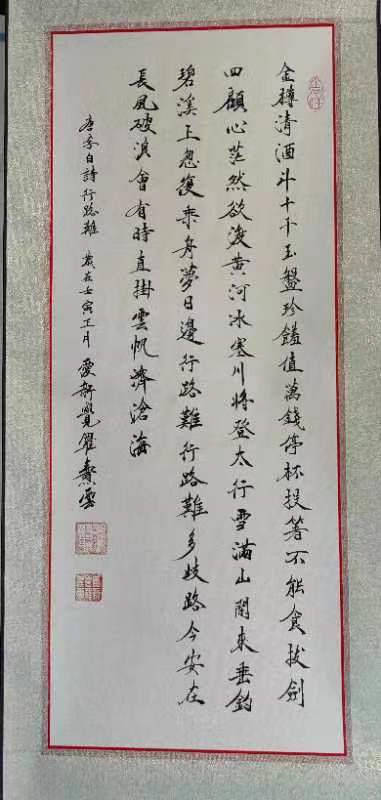 金樽清酒斗十千玉盤珍饈值萬錢停杯投箸不能食拔劍
四顧心茫然欲渡黃河冰塞川將登太行雪滿山閒來垂釣
碧溪上忽復乘舟夢日邊行路難行路難多歧路今安在
長風破浪會有時直掛雲帆濟滄海
唐李白詩行路難 歲在壬寅正月